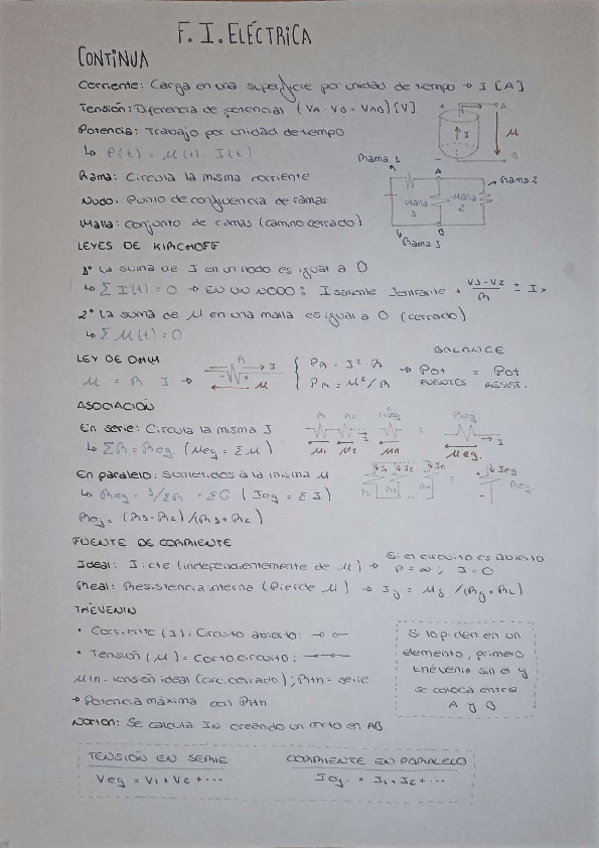 F. I. ELÉCTRICA
CONTINUA
Corriente: Carga en una superficie por unidad de tiempo → I [A]
Tensión: Diferencia de potencial (VA - VB = VAB) [V]
Potencia: Trabajo por unidad de tiempo
↳ P(t) = u(t) · I(t)
Rama: Circula la misma corriente
Nudo: Punto de confluencia de ramas
Malla: Conjunto de ramas (camino cerrado)
+ A
I u
- B
Rama 1
A
Rama 2
Malla 1
Malla 2
B
Rama 3
LEYES DE KIRCHOFF
1º La suma de I en un nodo es igual a 0
↳ Σ I(t) = 0 → EN UN NODO: I saliente
2º La suma de u en una malla es igual a 0 (cerrado)
↳ Σ u(t) = 0
LEY DE OHM
u = R · I →
R I
u
PR = I² · R
PR = u²/R
BALANCE
→ Pot FUENTES = Pot RESIST.
ASOCIACIÓN
En serie: Circula la misma I
↳ ΣR = Req. (ueq = Σu)
R1 R2
u1 u2 un
=
Req
I
ueq.
En paralelo: Sometidos a la misma u
↳ Req = 1/ΣR = ΣG (Ieq = Σ I)
Req = (R1·R2)/(R1+R2)
I1 I2 In
=
Ieq
Req.
FUENTE DE CORRIENTE
Ideal: I: cte (independientemente de u) → Si el circuito es abierto
P = ∞; I = 0
Real: Resistencia interna (Pierde u) → Ig = ug /(Rg + RL)
THÉVENIN
• Corriente (I): Circuito abierto:
• Tensión (u) = Cortocircuito:
uth = tensión ideal (circ. cerrado); Rth = serie
→ Potencia máxima con Rth
Norton: Se calcula IN creando un corto en AB
Si lo piden en un
elemento, primero
thévenin sin él y
se coloca entre
A y B
TENSIÓN EN SERIE
Veq = V1 + V2 + ...
CORRIENTE EN PARALELO
Ieq. = I1 + I2 + ...